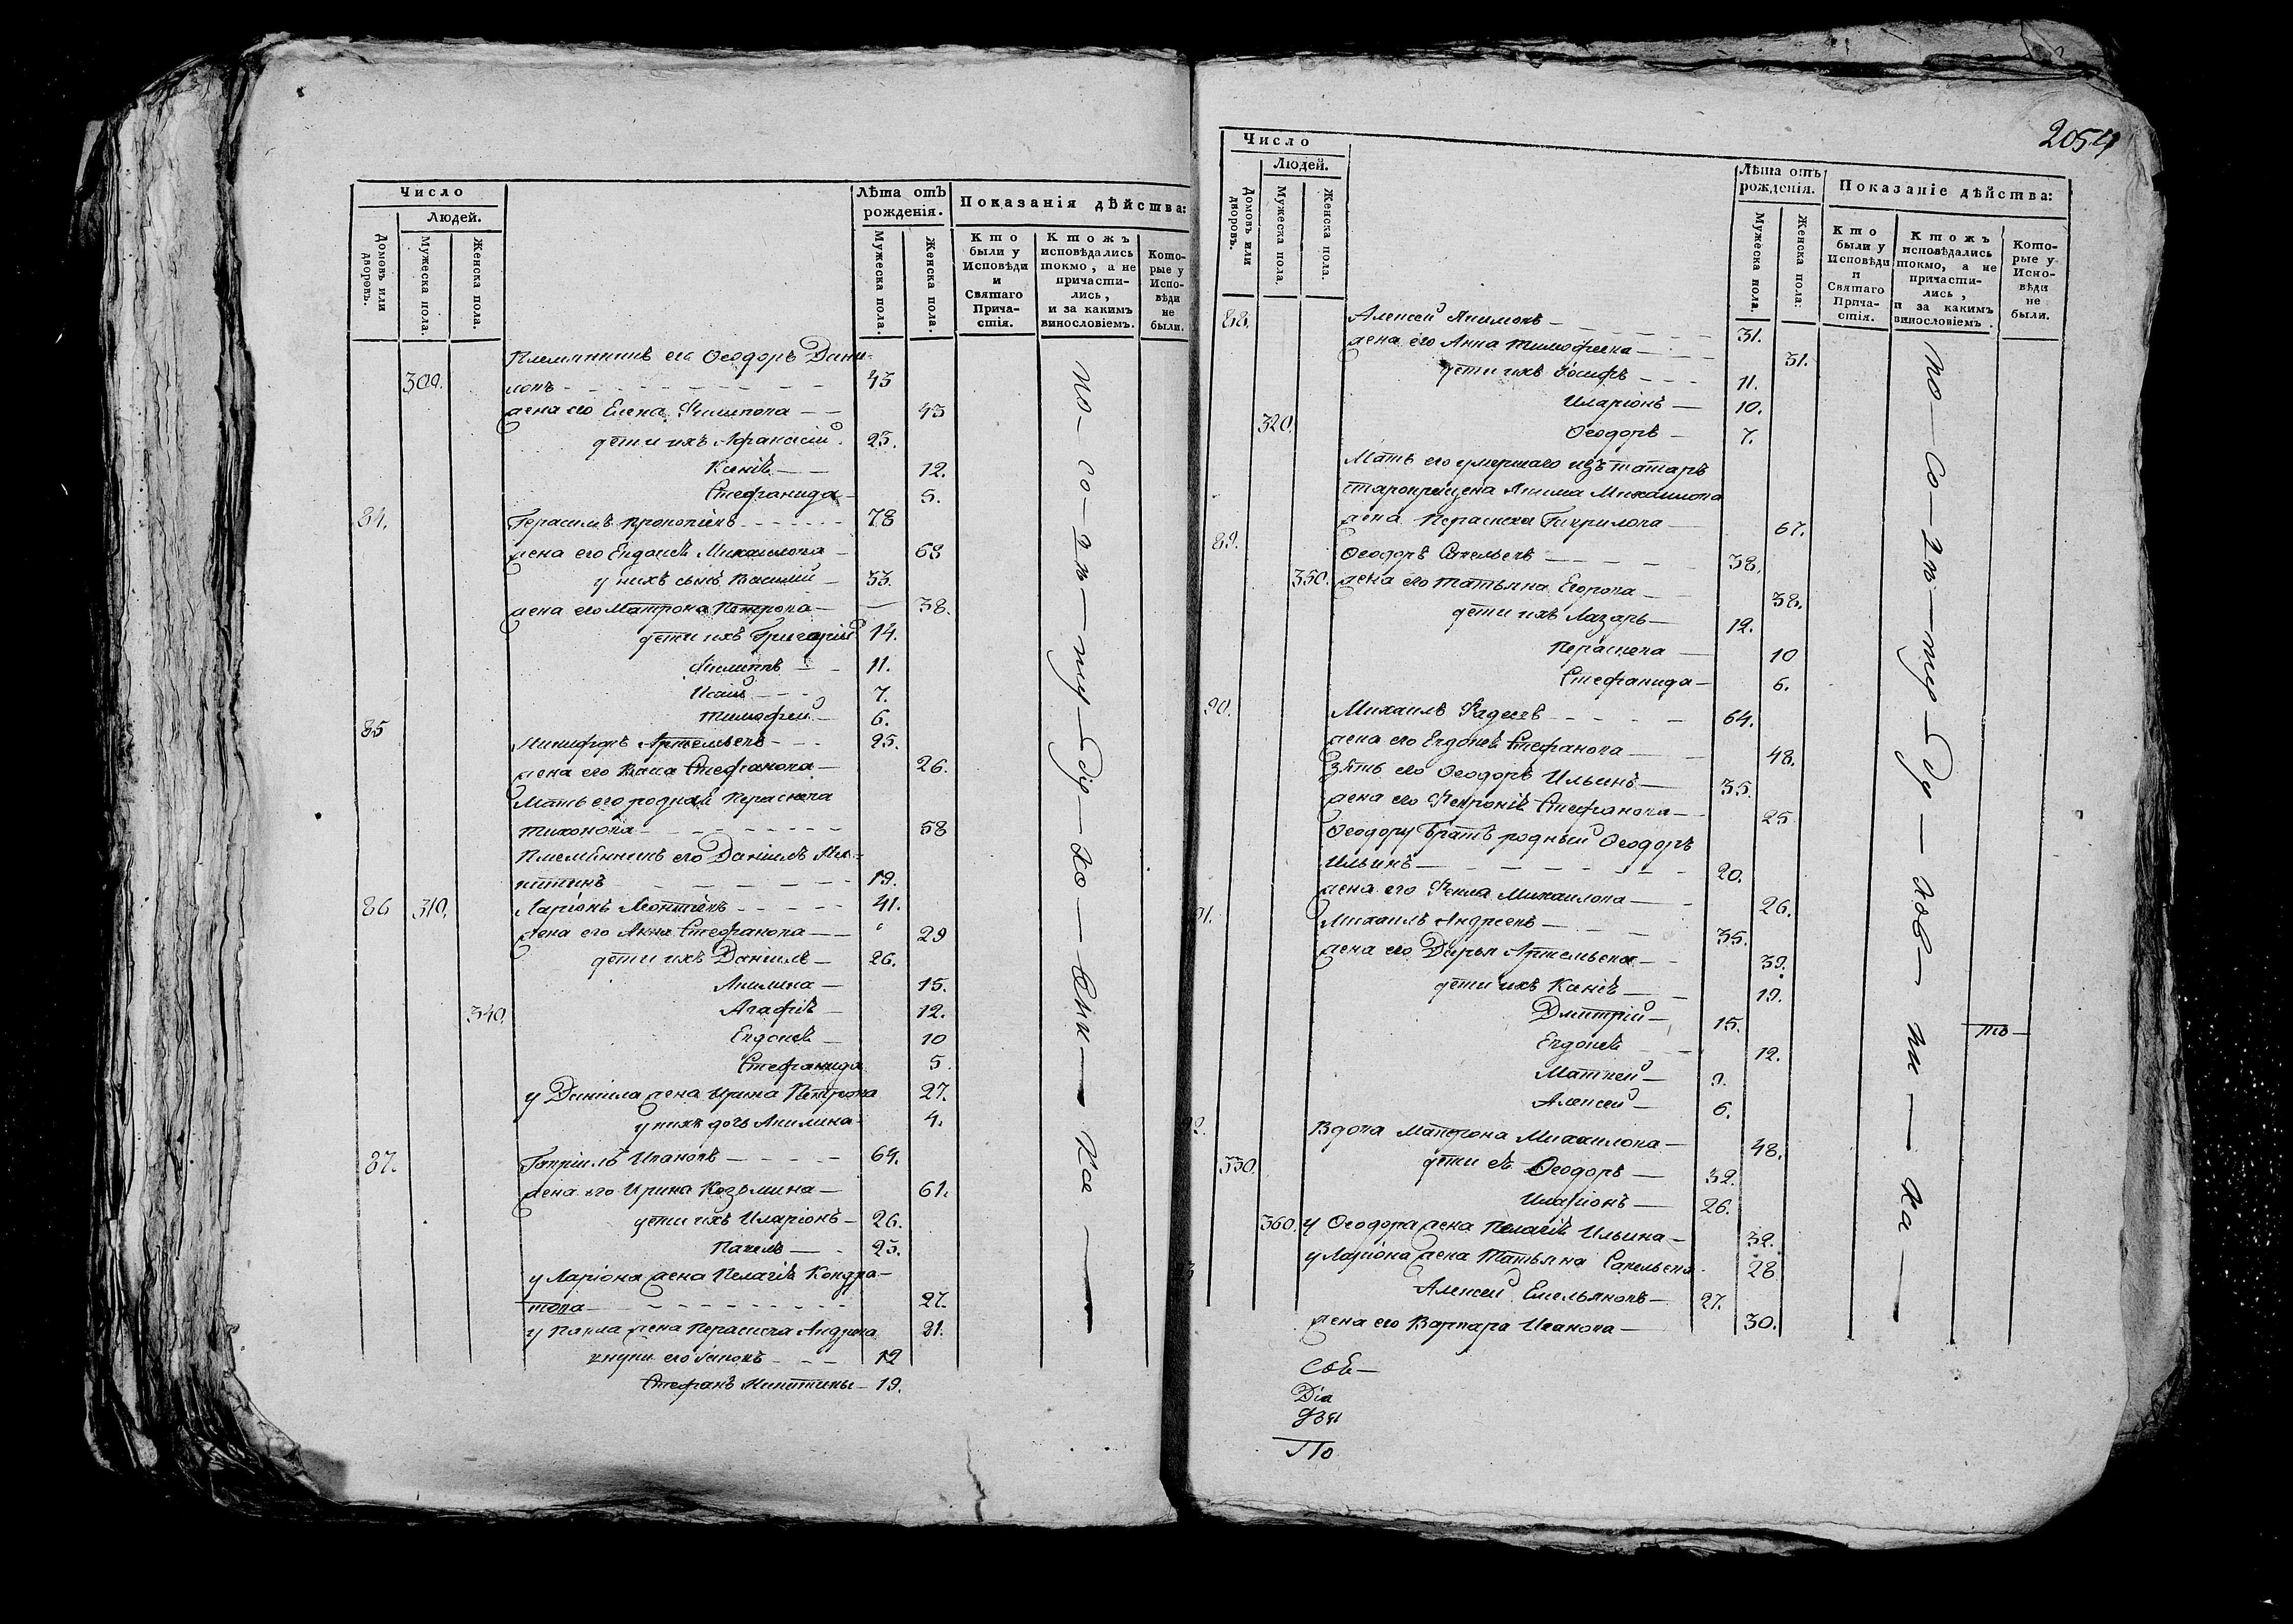 Число
Людей.
Домовъ или дворовъ.
Мужеска пола.
Женска пола.
Лѣта отъ рожденія.
Мужеска пола.
Женска пола.
Показанія дѣйства:
Кто были у Исповѣди и Святаго Причастія.
Ктожъ исповѣдались токмо, а не причастились, и за какимъ винословіемъ.
Которые у Исповѣди не были.
Племянникъ его Ѳеодоръ Дани-
300. ловъ 45
жена его Елена Филипова 43
дети ихъ Афанасій 23.
Ксенія 12.
Стефанида 5.
84. Герасимъ Прокопіевъ 78
жена его Евдокія Михаилова 68
у нихъ сынъ Василій 33.
жена его Матрона Петрова 38.
дети ихъ Григорій 14.
Филиппъ 11.
Исаій 7.
Тимофей 6.
85 Никифоръ Артемьевъ 25.
жена его Васа Стефанова 26.
Мать его родная Параскева
Тихонова 58
Племянникъ его Даніилъ Ни-
китинъ 19.
86 310. Ларіонъ Леонтіевъ 41.
жена его Анна Стефанова 29
дети ихъ Даніилъ 26.
Акилина 15.
340 Агафія 12.
Евдокія 10
Стефанида 5.
у Даніила жена Ирина Петрова 27.
у нихъ дочь Акилина 4.
87. Гавріилъ Ивановъ 69.
жена его Ирина Козьмина 61.
дети ихъ Иларіонъ 26.
Павелъ 23.
у Ларіона жена Пелагія Кондра-
това 27.
у Павла жена Параскева Андреева 21.
внуки его Іаковъ 12
Стефанъ Никитины 19.
205
Число
Людей.
Домовъ или дворовъ.
Мужеска пола.
Женска пола.
Лѣта отъ рожденія.
Мужеска пола.
Женска пола:
Показаніе дѣйства:
Кто были у Исповѣди и Святаго Причастія.
Ктожъ исповѣдались токмо, а не причастились, и за какимъ винословіемъ.
Которые у Исповѣди не были.
88. Алексей Акимовъ 31.
жена его Анна Тимофеева 31.
дети ихъ Іосифъ 11.
Иларіонъ 10.
320. Ѳеодоръ 7.
Мать его умершаго изъ татаръ
старокрещена Акима Михаилова
жена Параскева Гаврилова 67.
89. Ѳеодоръ Савельевъ 38.
350. жена его Татьяна Егорова 38.
дети ихъ Лазарь 12.
Параскева 10
Стефанида 6.
90. Михаилъ Фадеевъ 64.
жена его Евдокія Стефанова 48.
Зять его Ѳеодоръ Ильинъ 35.
жена его Февронія Стефанова 25
Ѳеодору братъ родный Ѳеодоръ
Ильинъ 20.
жена его Фекла Михаилова 26.
91. Михаилъ Андреевъ 35.
жена его Дарья Артемьева 39.
дети ихъ Ксенія 19.
Дмитрій 15.
Евдокія 12.
Матвей 9.
Алексей 6.
92. Вдова Матрона Михаилова 48.
330. дети ея Ѳеодоръ 32.
Иларіонъ 26.
360. у Ѳеодора жена Пелагія Ильина 32.
у Ларіона жена Татьяна Савельева 28
Алексей Емельяновъ 27.
жена его Варвара Иванова 30.
Свя
Діа
Дья
По